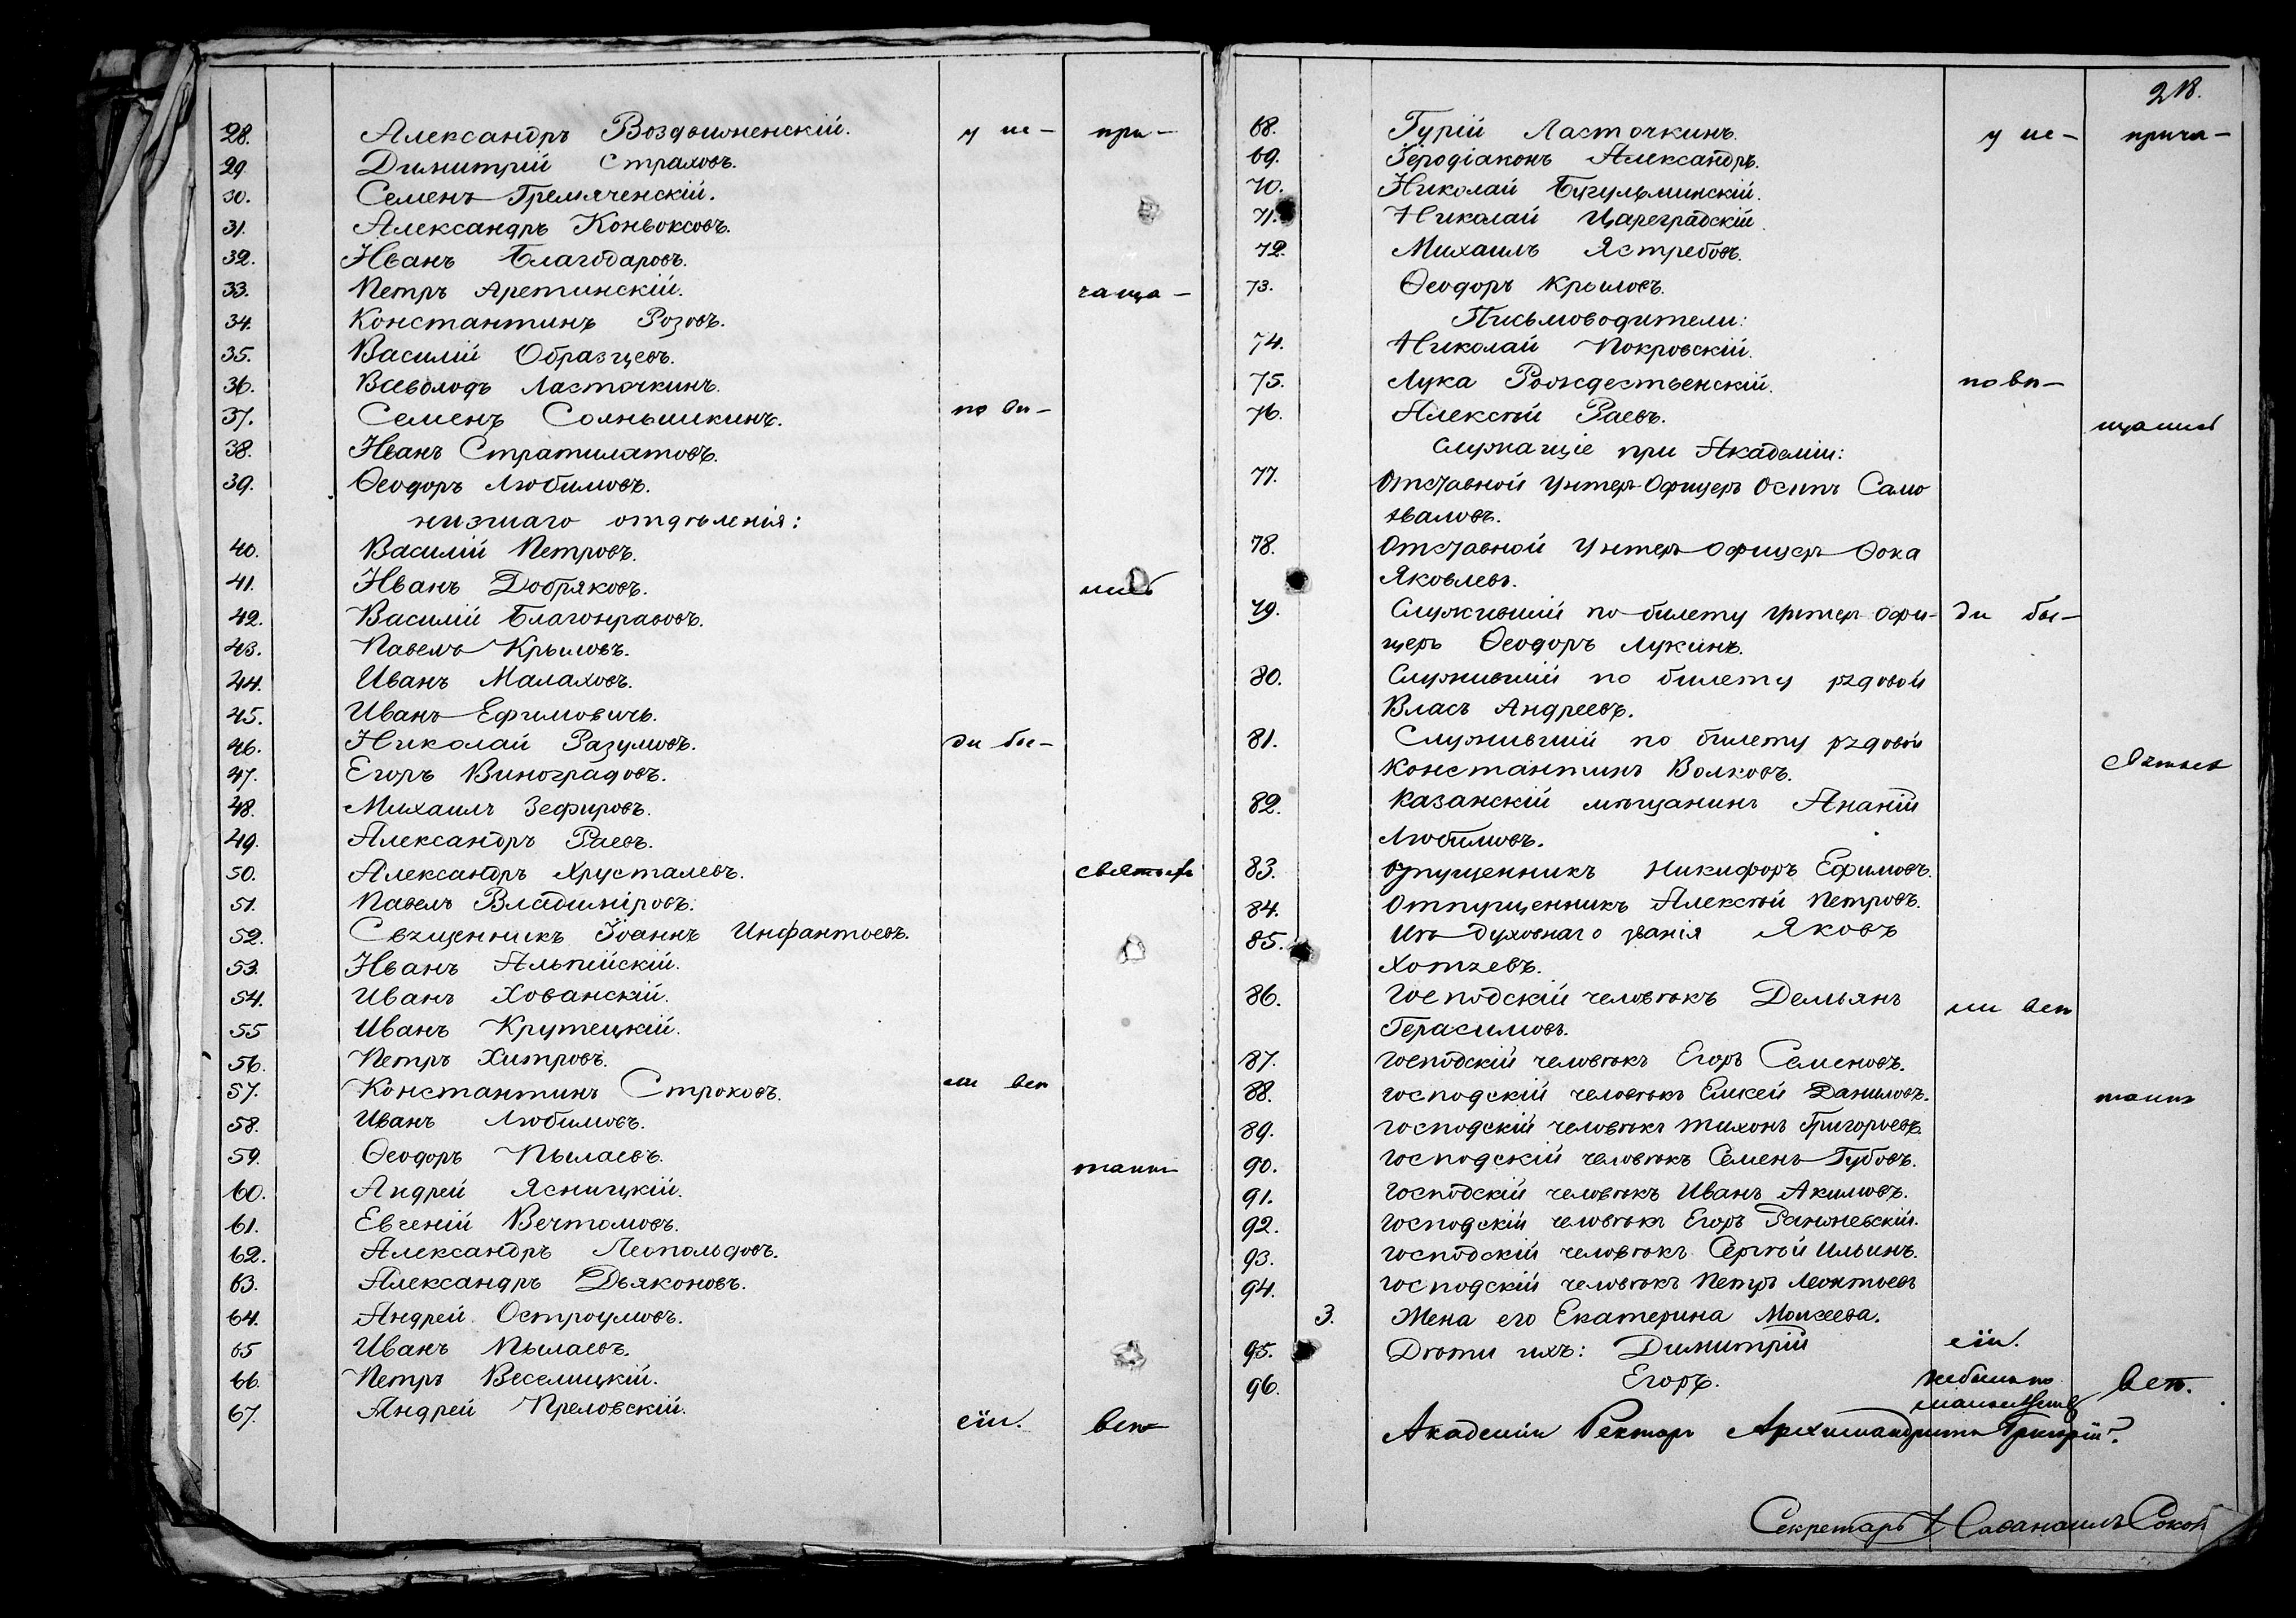 28. Александръ Воздвиженскій. у ис- при-
29. Димитрій Страховъ.
30. Семенъ Гремяченскій.
31. Александръ Коньоксовъ.
32. Иванъ Благодаровъ.
33. Петръ Аретинскій. чаща-
34. Константинъ Розовъ.
35. Василій Образцевъ.
36. Всеволодъ Ласточкинъ.
37. Семенъ Солнышкинъ. по вѣ-
38. Иванъ Стратилатовъ.
39. Ѳеодоръ Любимовъ.
низшаго отдѣленія:
40. Василій Петровъ.
41. Иванъ Добряковъ. лись
42. Василій Благонравовъ.
43. Павелъ Крыловъ.
44. Иванъ Малаховъ.
45. Иванъ Ефимовичъ.
46. Николай Разумовъ. ди бы-
47. Егоръ Виноградовъ.
48. Михаилъ Зефировъ.
49. Александръ Раевъ.
50. Александръ Хрусталевъ. святыхъ
51. Павелъ Владиміровъ.
52. Священникъ Іоаннъ Инфантьевъ.
53. Иванъ Альпійскій.
54. Иванъ Хованскій.
55 Иванъ Крутецкій.
56. Петръ Хитровъ.
57. Константинъ Строковъ. ли всѣ
58. Иванъ Любимовъ.
59. Ѳеодоръ Пылаевъ. таин
60. Андрей Ясницкій.
61. Евгеній Вечтомовъ.
62. Александръ Леопольдовъ.
63. Александръ Дьяконовъ.
64. Андрей Остроумовъ.
65 Иванъ Пылаевъ.
66. Петръ Веселицкій.
67. Андрей Преловскій. сіи. всѣ
218.
68. Гурій Ласточкинъ. у ис- прича-
69. Іеродіаконъ Александръ.
70. Николай Бугульминскій.
71. Николай Цареградскій.
72. Михаилъ Ястребовъ.
73. Ѳеодоръ Крыловъ.
Письмоводители:
74. Николай Покровскій.
75. Лука Рождественскій. повѣ-
76. Алексѣй Раевъ. щались
Служащіе при Академіи:
77. Отставной Унтер-Офицеръ Осипъ Само
хваловъ.
78. Отставной Унтеръ-Офицеръ Ѳока
Яковлевъ.
79. Служившій по билету Унтер-Офи- ди бы-
церъ Ѳеодоръ Лукинъ.
80. Служившій по билету рядовой
Власъ Андреевъ.
81. Служившій по билету рядовой
Константинъ Волковъ. Святыхъ
82. Казанскій мѣщанинъ Ананій
Любимовъ.
83. Отпущенникъ Никифоръ Ефимовъ.
84. Отпущенникъ Алексѣй Петровъ.
85. Изъ духовнаго званія Яковъ
Хотяевъ.
86. Господскій человѣкъ Демьянъ ли всѣ
Герасимовъ.
87. Господскій человѣкъ Егоръ Семеновъ.
88. Господскій человѣкъ Елисей Даниловъ. таинъ
89. Господскій человѣкъ Тихонъ Григорьевъ.
90. Господскій человѣкъ Семенъ Губовъ.
91. Господскій человѣкъ Иванъ Акимовъ.
92. Господскій человѣкъ Егоръ
93. Господскій человѣкъ Сергѣй Ильинъ.
94. Господскій человѣкъ Петръ Леонтьевъ
3. Жена его Екатерина Моисеева.
95. Дѣти ихъ: Димитрій сіи.
96. Егоръ. небыли по малолѣтств всѣ.
Академіи Ректоръ Архимандритъ Григорій
Секретарь Наѳанаилъ Сокол